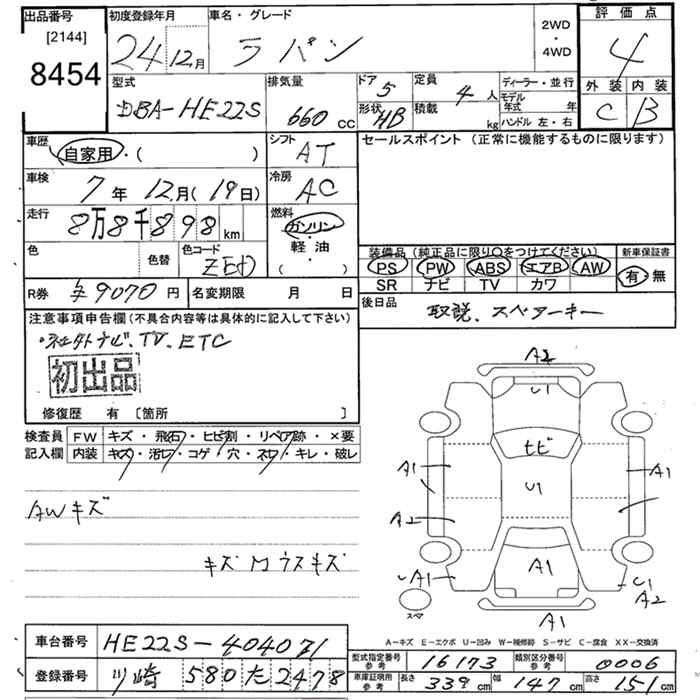 出品番号
[2144]
8454
初度登録年月
24 12月
車名・グレード
ラパン
2WD
・
4WD
評価点
4
外装 内装
C B
型式
DBA-HE22S
排気量
660 CC
ドア 5
形状 HB
定員 4 人
積載 kg
ディーラー・並行
モデル年式 年
ハンドル 左・右
車歴
自家用・( )
シフト
AT
セールスポイント (正常に機能するものに限ります)
車検
7年 12月(19日)
冷房
AC
走行
8万8千898km
燃料
ガソリン
・
軽・油
( )
色
色替
色コード
ZEJ
装備品(純正品に限り○をつけてください)
PS PW ABS エアB AW
SR ナビ TV カワ
新車保証書
有・無
R券 ¥9070円
名変期限 月 日
後日品
取説、スペアーキー
注意事項申告欄(不具合内容等は具体的に記入して下さい)
・社外ナビ、TV、ETC
初出品
修復歴 有 〔箇所 〕
検査員
記入欄
FW キズ・飛石・ヒビ割・リペア跡・×要
内装 キズ・汚レ・コゲ・穴・ネジ・キレ・破レ
AWキズ
キズMウスキズ
A2
U1
ヒビ
A1
U1
A1
A2
A1
A1
U1
A2
A1
スペア
A−キズ E−エクボ U−凹み W−補修跡 S−サビ C−腐食 XX−交換済
車台番号 HE22S-404071
登録番号 川崎 580 た 2478
型式指定番号
参考
16173
類別区分番号
参考
0006
車庫証明用
参考
長さ 339cm
幅 147cm
高さ 151cm